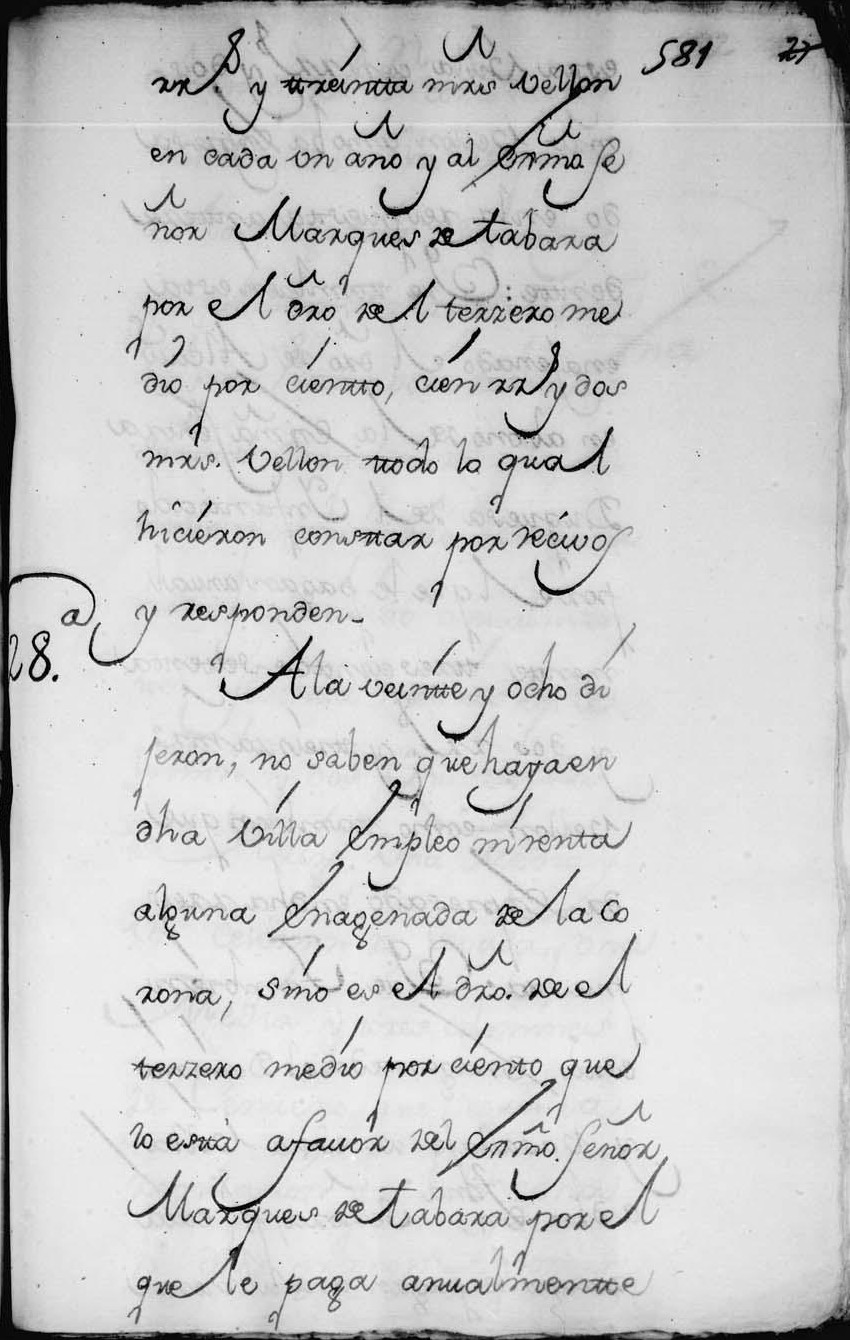 581 27
rrs. y ttreintta mrs vellon
en cada un año y al Exmo. Se
ñor Marques de tabara
por el dro de el terzero me
dio por cientto, cien rrs y dos
mrs. vellon ttodo lo qual
hicieron consttar por recivos
y responden-
28.a
A la veintte y ocho di
jeron, no saben que haya en
dha villa Empleo ni renta
alguna Enagenada de la Co
rona, sino es el dro. de el
terzero medio por ciento que
lo esttá a favor del Exmo. Señor
Marques de tabara por el
que le paga anualmentte